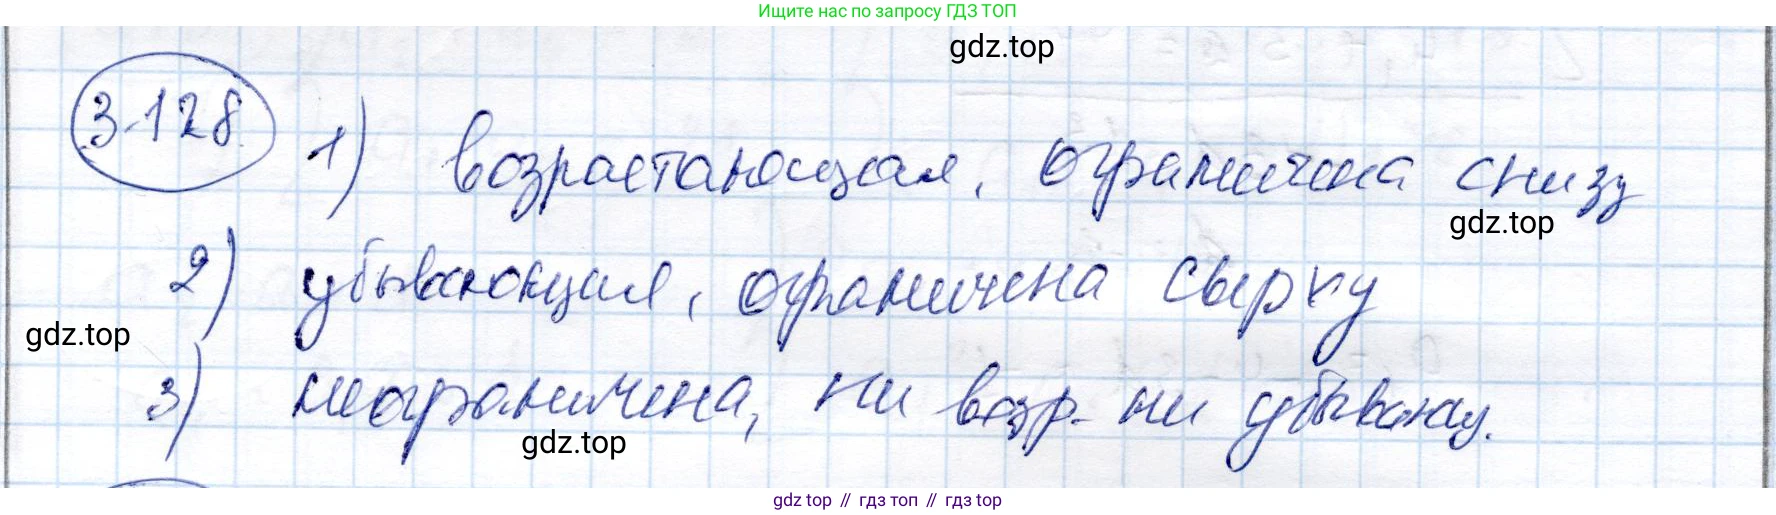 Ищите нас по запросу ГДЗ ТОП
gdz.top
3.128 1) возрастающая, ограничена снизу
gdz.top
2) убывающая, ограничена сверху
gdz.top
3) неограничена, ни возр. ни убывающ.
gdz.top
gdz top // гдз топ // гдз top